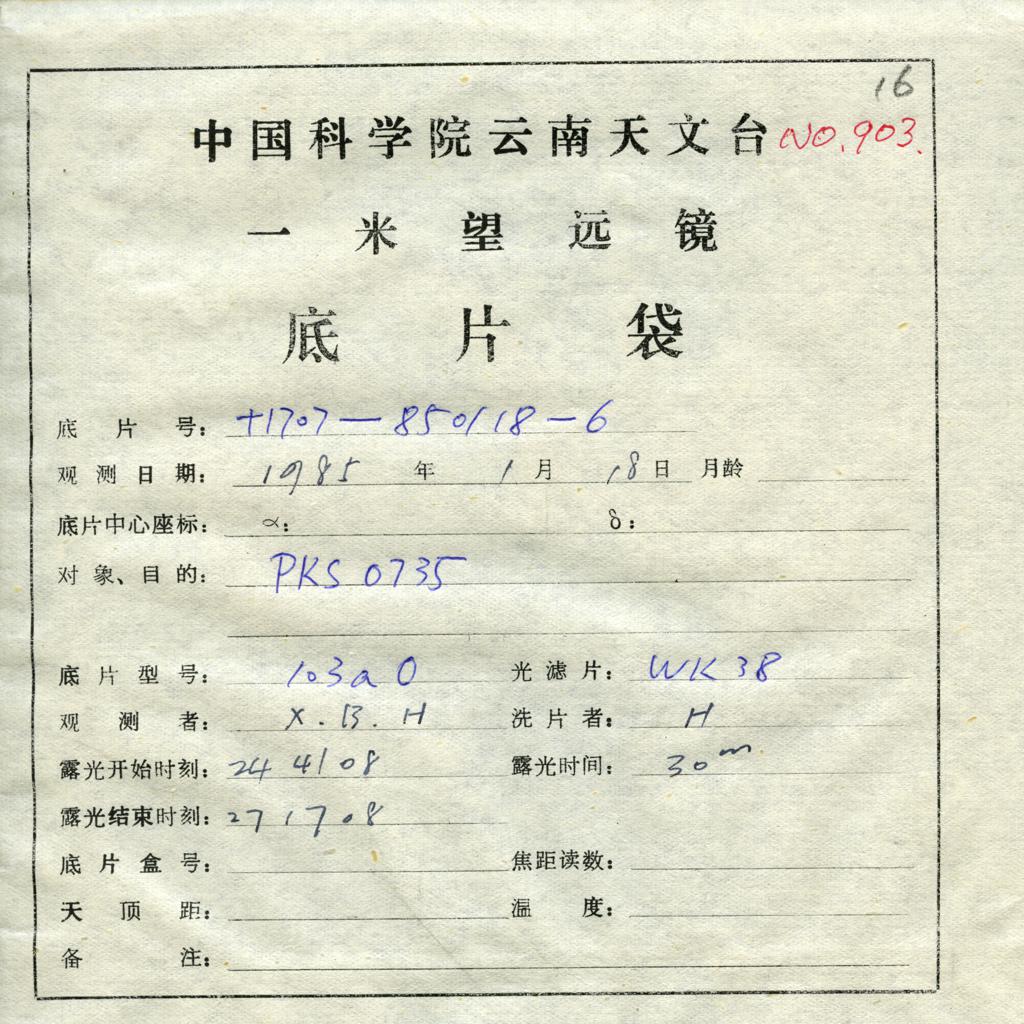 16
中国科学院云南天文台 NO.903.
一米望远镜
底片袋
底片号: +1707-850118-6
观测日期: 1985年1月18日 月龄
底片中心座标: α: δ:
对象、目的: PKS 0735
底片型号: 103aO 光滤片: WK38
观测者: X.B.H 洗片者: H
露光开始时刻: 244108 露光时间: 30m
露光结束时刻: 271708
底片盒号: 焦距读数:
天顶距: 温度:
备注: